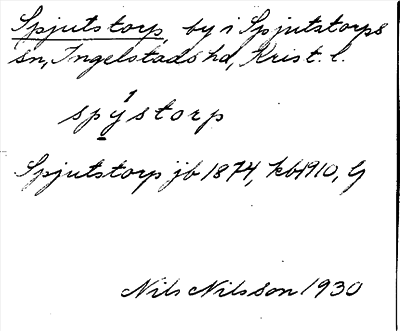 Spjutstorp, by i Spjutstorps
sn, Ingelstads hd, Krist. l.
1
spystorp
Spjutstorp jb 1874, kb 1910, G
Nils Nilsson 1930